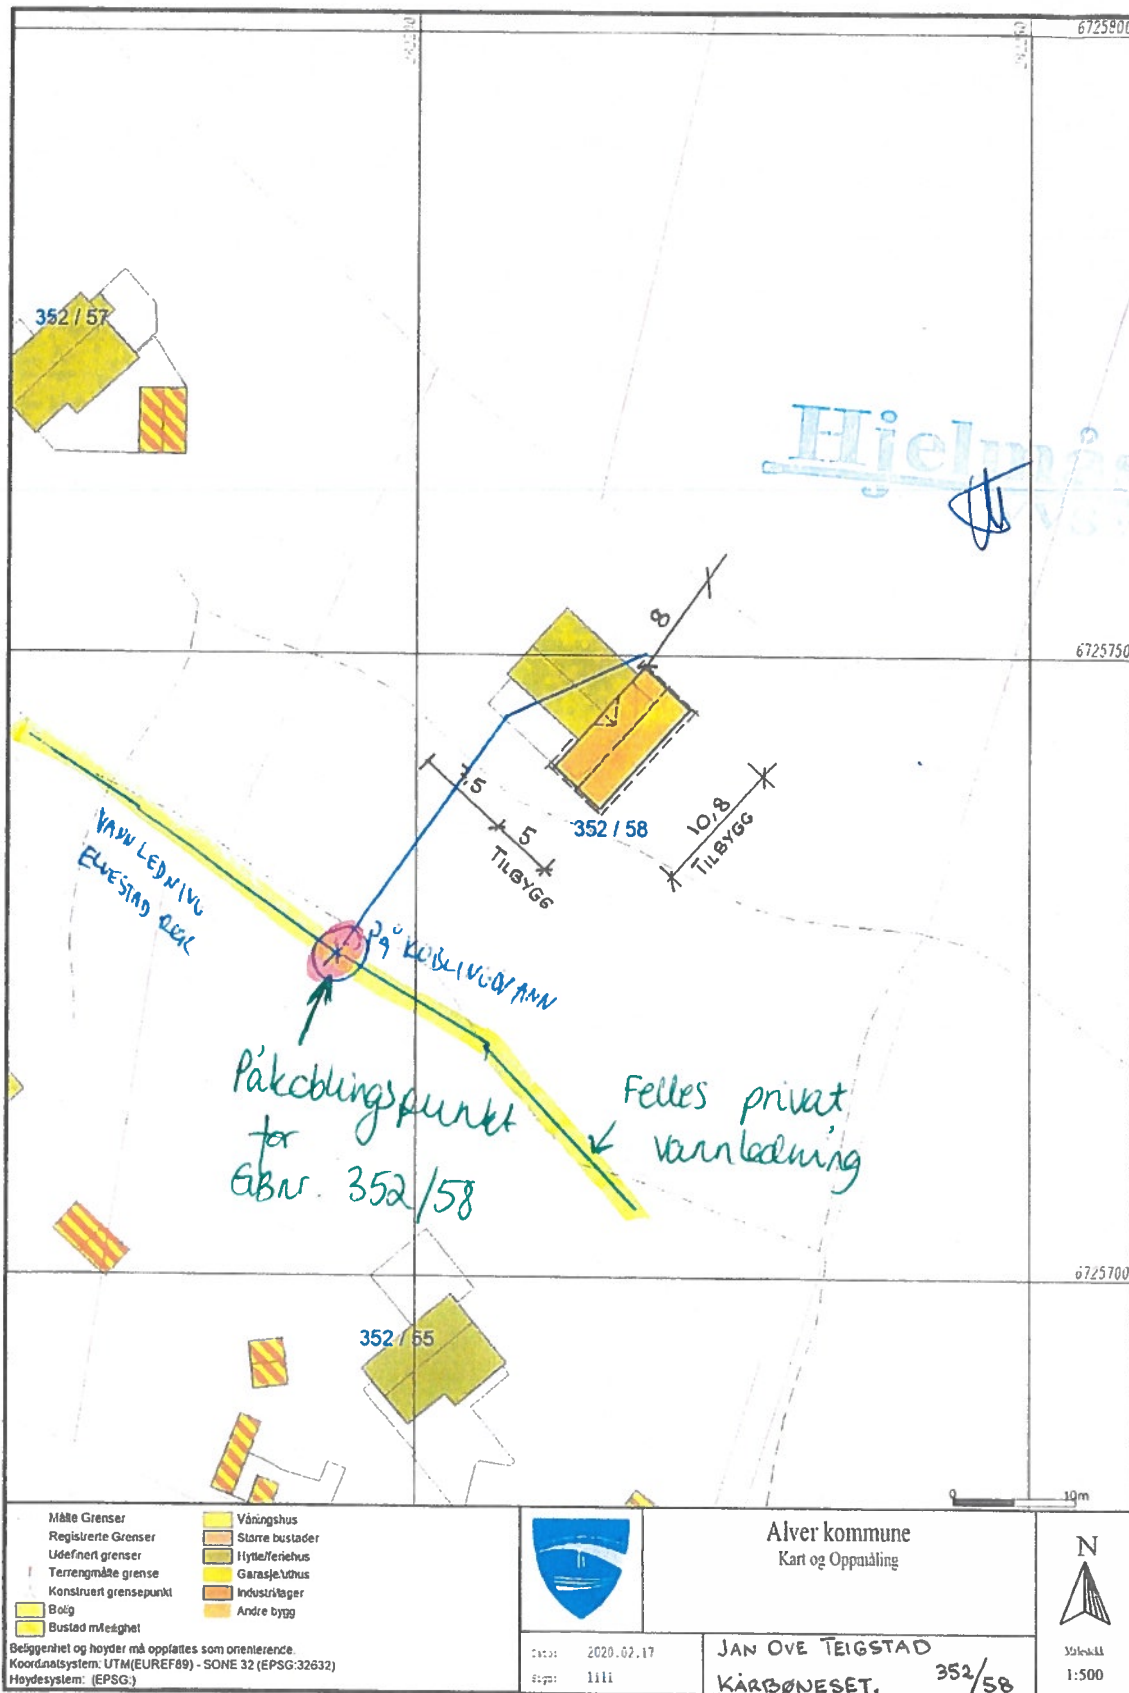 6725800
352 / 57
Hjelmås
8
6725750
7,5
5
TILBYGG
352 / 58
10,8
TILBYGG
VANNLEDNING
ELVESTAD
PÅKOBLING VANN
Påkoblingspunkt
for
GBNr. 352/58
Felles privat
vannledning
6725700
352 / 55
0 10m
Målte Grenser
Registrerte Grenser
Udefinert grenser
Terrengmålte grense
Konstruert grensepunkt
Bolig
Bustad m/leilighet
Våningshus
Større bustader
Hytte/feriehus
Garasje/uthus
Industri/lager
Andre bygg
Beliggenhet og høyder må oppfattes som orienterende.
Koordinatsystem: UTM(EUREF89) - SONE 32 (EPSG:32632)
Høydesystem: (EPSG:)
Alver kommune
Kart og Oppmåling
Dato: 2020.02.17
Sign: lili
JAN OVE TEIGSTAD
KÅRBØNESET. 352/58
N
Målestokk
1:500